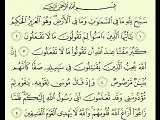 بسم الله الرحمن الرحيم
سَبَّحَ لِلَّهِ مَا فِي السَّمَٰوَٰتِ وَمَا فِي الْأَرْضِ وَهُوَ الْعَزِيزُ الْحَكِيمُ
١ يَٰٓأَيُّهَا الَّذِينَ ءَامَنُوا لِمَ تَقُولُونَ مَا لَا تَفْعَلُونَ ٢
كَبُرَ مَقْتًا عِندَ اللَّهِ أَن تَقُولُوا مَا لَا تَفْعَلُونَ ٣
إِنَّ اللَّهَ يُحِبُّ الَّذِينَ يُقَٰتِلُونَ فِي سَبِيلِهِ صَفًّا كَأَنَّهُم
بُنْيَٰنٌ مَّرْصُوصٌ ٤ وَإِذْ قَالَ مُوسَىٰ لِقَوْمِهِ يَٰقَوْمِ لِمَ
تُؤْذُونَنِي وَقَد تَّعْلَمُونَ أَنِّي رَسُولُ اللَّهِ إِلَيْكُمْ فَلَمَّا
زَاغُوا أَزَاغَ اللَّهُ قُلُوبَهُمْ وَاللَّهُ لَا يَهْدِي الْقَوْمَ